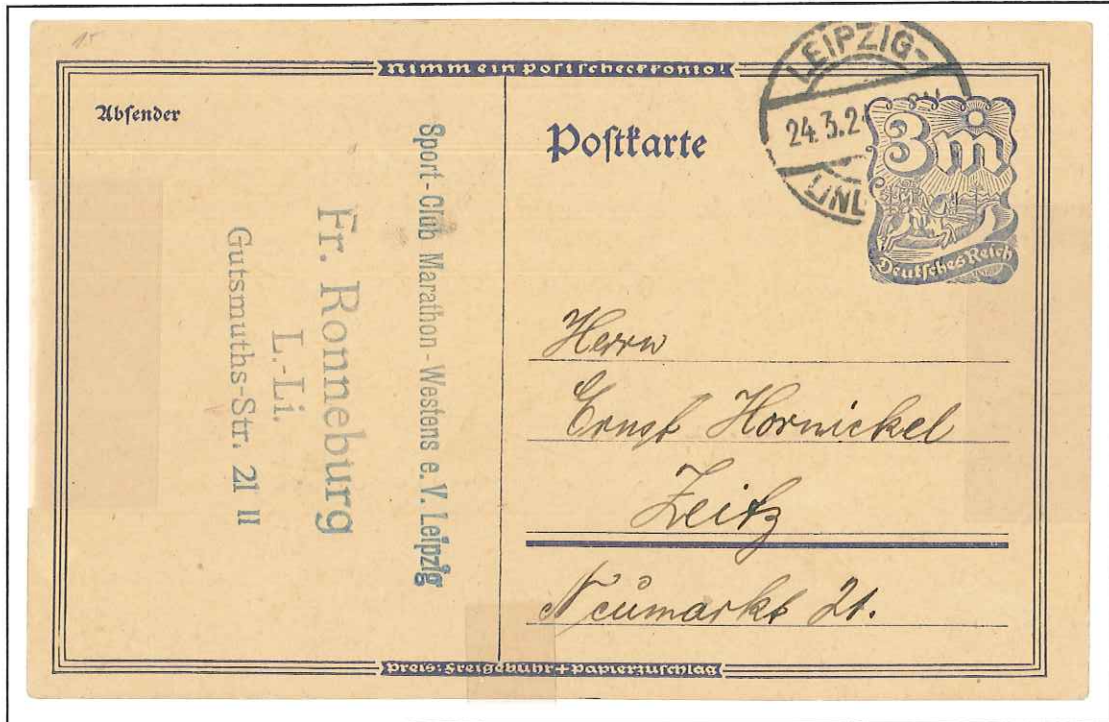 15
Nimm ein Postscheckkonto!
Absender
Sport-Club Marathon-Westens e.V. Leipzig
Fr. Ronneburg
L.-Li.
Gutsmuths-Str. 21 II
Postkarte
LEIPZIG-
24.3.2
LINL
3 m
Deutsches Reich
Herrn
Ernst Hornickel
Zeitz
Neumarkt 21.
Preis: Freigebühr + Papierzuschlag